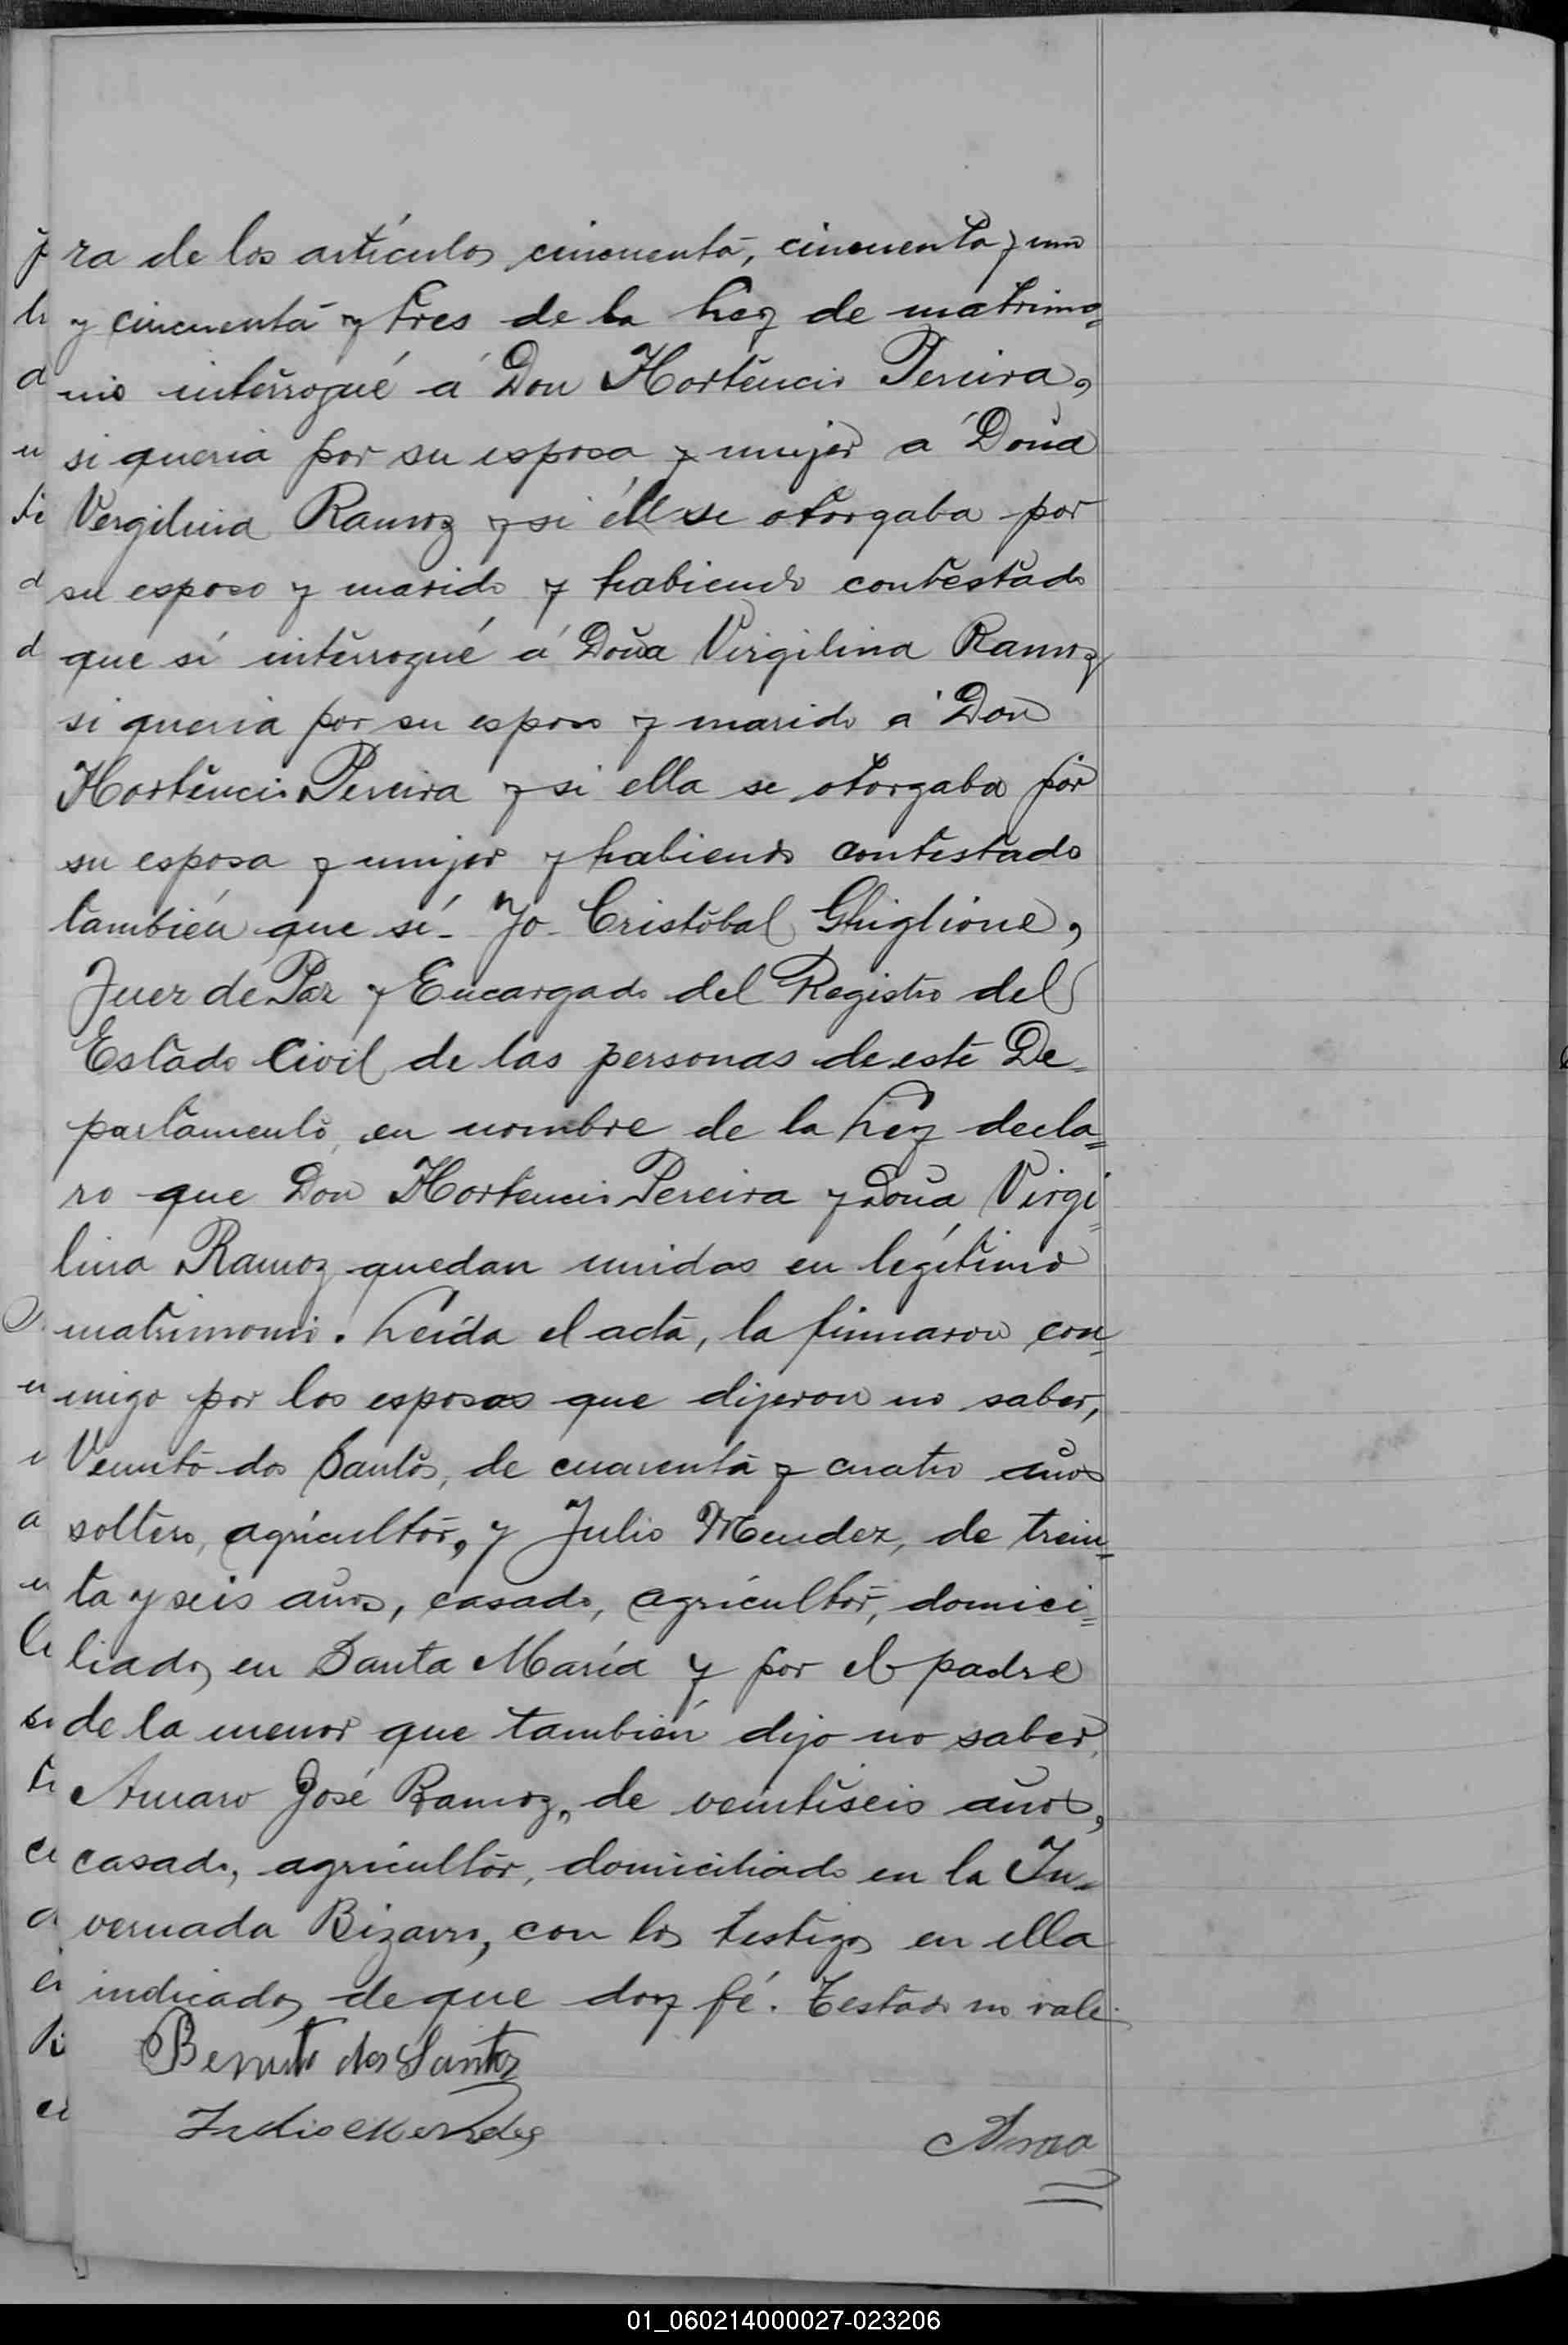 ra de los artículos cincuenta, cincuenta y uno
y cincuenta y tres de la Ley de matrimo=
nio interrogué á Don Hortencio Pereira,
si queria por su esposa y mujer a Doña
Vergilina Ramoz y si él se otorgaba por
su esposo y marido y habiendo contestado
que sí interrogué á Doña Virgilina Ramoz
si queria por su esposo y marido a Don
Hortencio Pereira y si ella se otorgaba por
su esposa y mujer y habiendo contestado
también que sí- Yo- Cristóbal Ghiglione,
Juez de Paz y Encargado del Registro del
Estado Civil de las personas de este De=
partamento, en nombre de la Ley decla=
ro que Don Hortencio Pereira y Doña Virgi=
lina Ramoz quedan unidos en legítimo
matrimonio. Leída el acta, la firmaron con=
migo por los esposos que dijeron no saber,
Venuto dos Santos, de cuarenta y cuatro años
soltero, agricultor, y Julio Mendez, de trein=
ta y seis años, casado, agricultor, domici=
liados en Santa María y por el padre
de la menor que también dijo no saber,
Amaro José Ramoz, de veintiseis años,
casado, agricultor, domiciliado en la In=
vernada Bizarro, con los testigos en ella
indicados de que doy fé. Testado no vale.
Benuto dos Santos
Julio Mendes
01_060214000027-023206